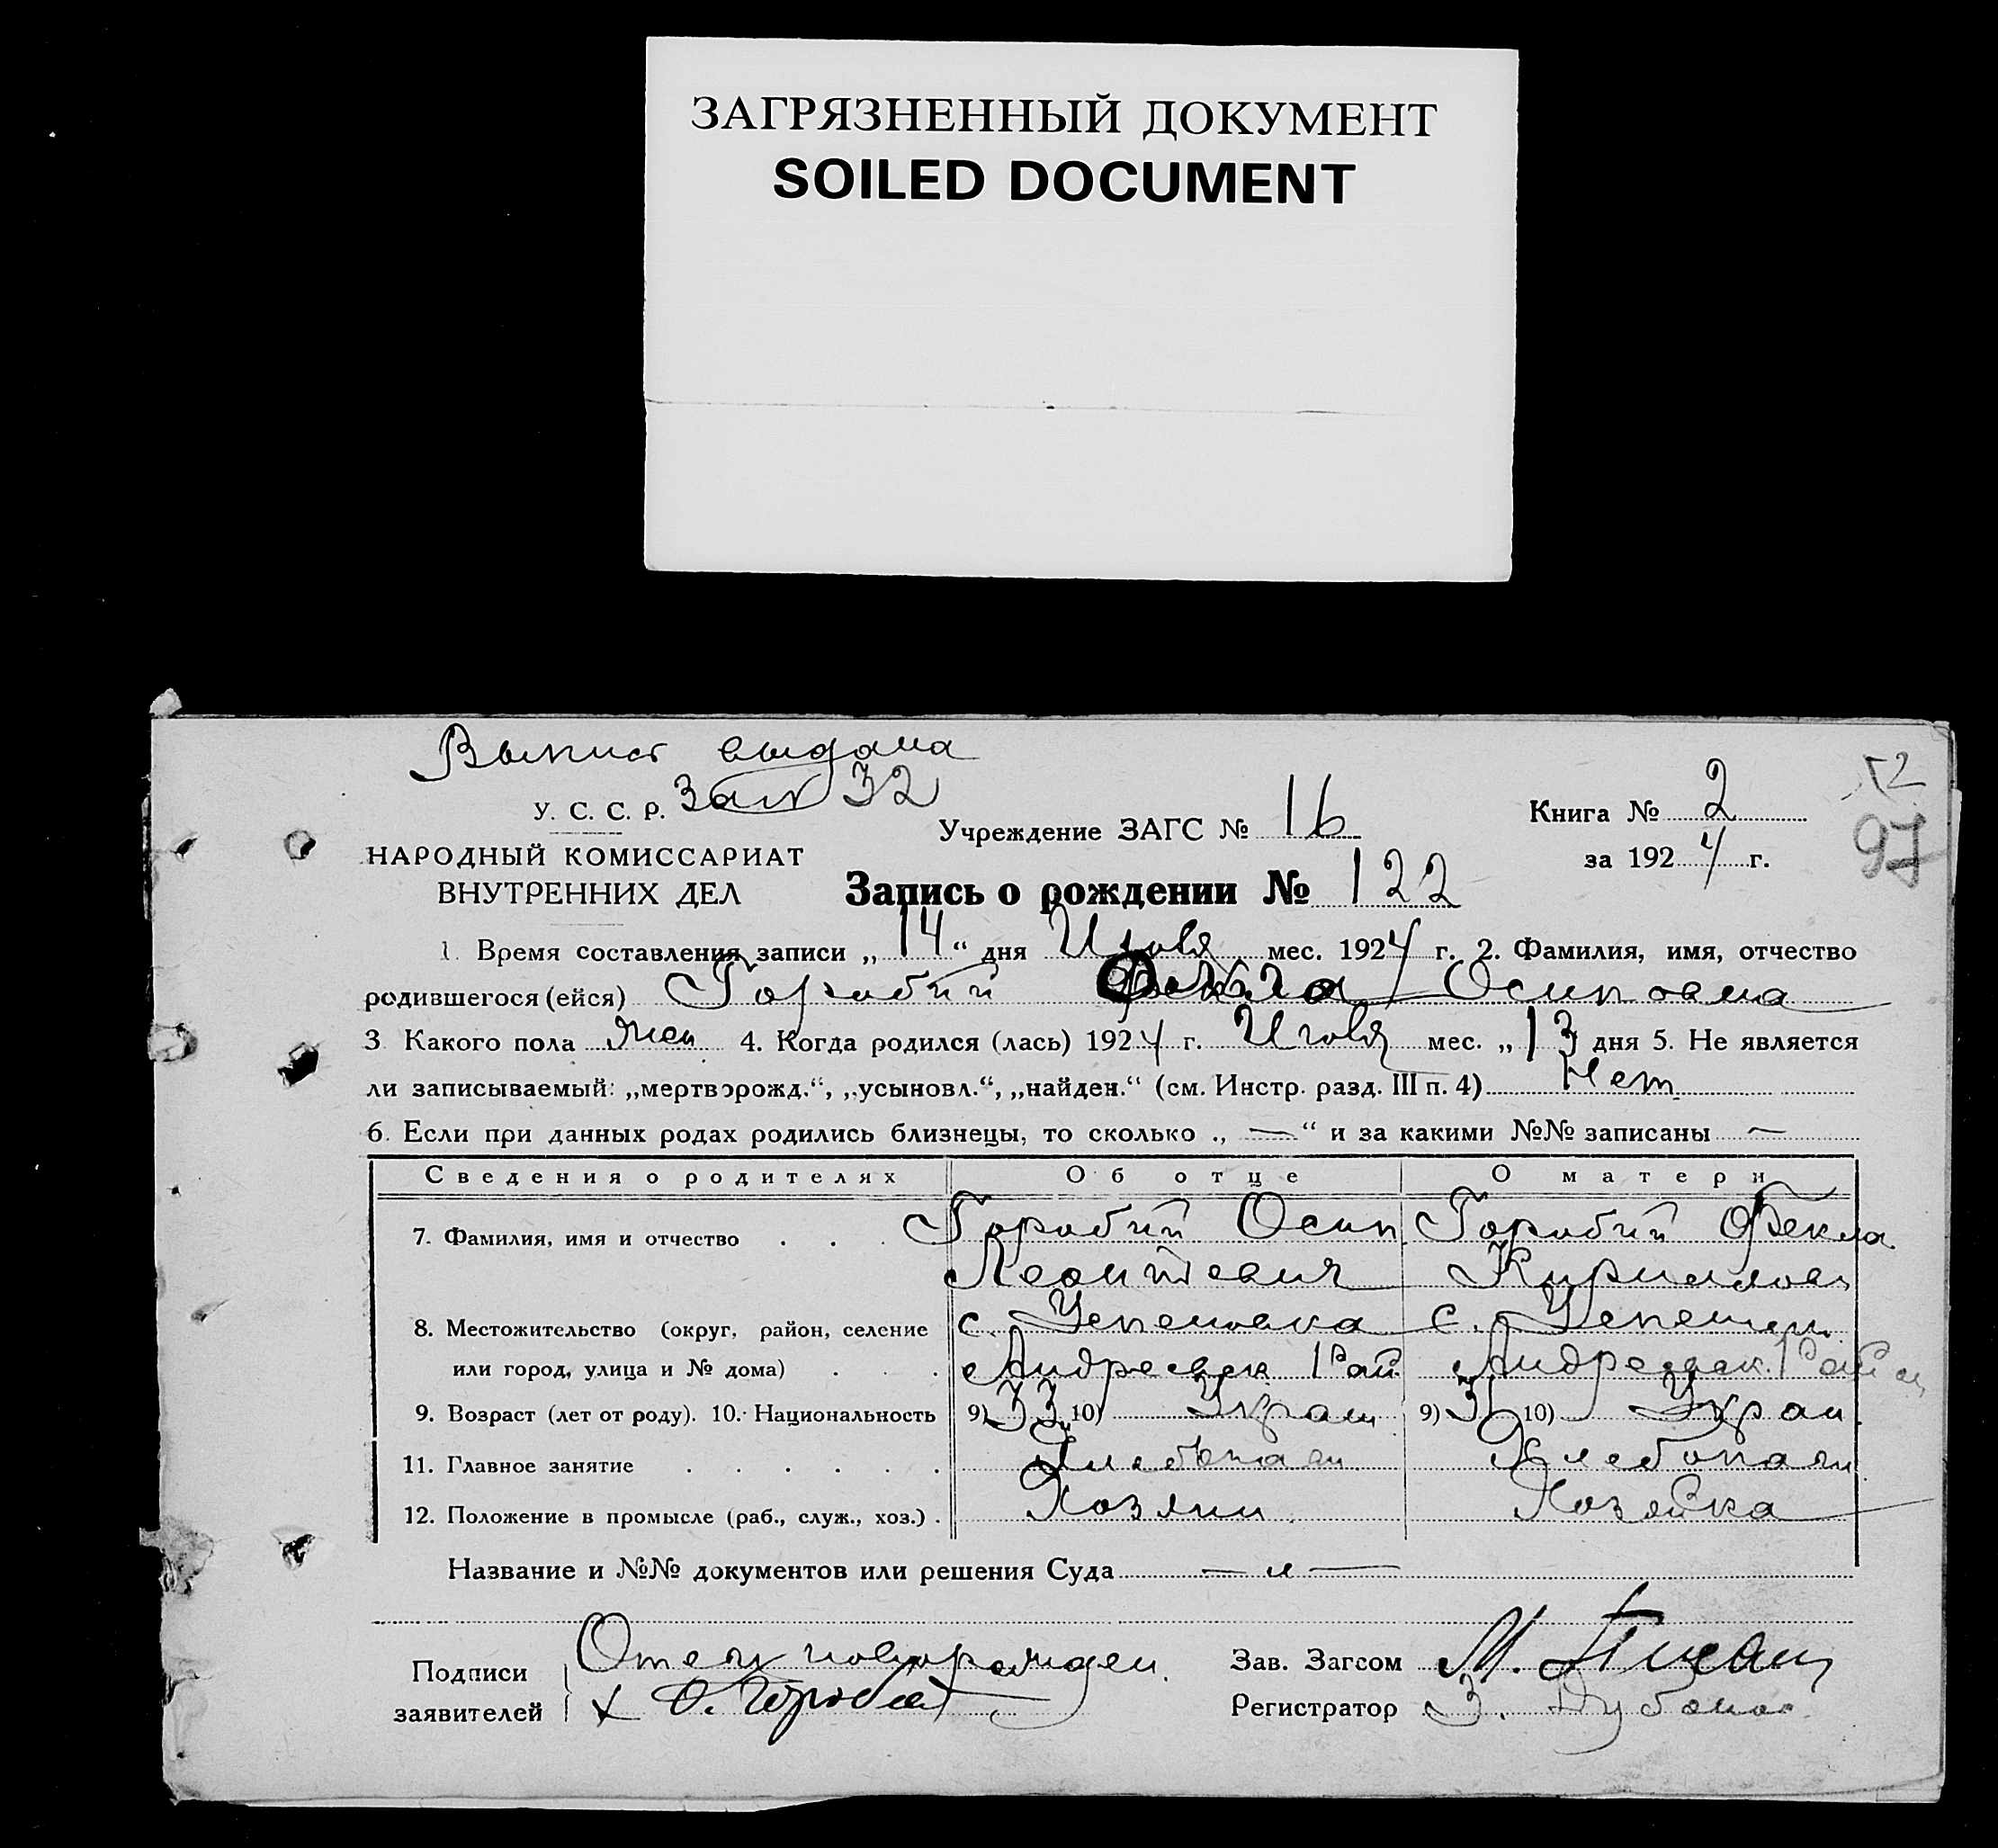 ЗАГРЯЗНЕННЫЙ ДОКУМЕНТ
SOILED DOCUMENT
Выпись выдана
У. С. С. Р. 32
Учреждение ЗАГС № 16
Книга № 2
97
НАРОДНЫЙ КОМИССАРИАТ
ВНУТРЕННИХ ДЕЛ
за 1924 г.
Запись о рождении № 122
1. Время составления записи „14“ дня Июля мес. 1924 г. 2. Фамилия, имя, отчество
родившегося (ейся) Горобий Фекла Осиповна
3. Какого пола жен 4. Когда родился (лась) 1924 г. Июля мес. „13 дня 5. Не является
ли записываемый: „мертворожд.“, „усыновл.“, „найден.“ (см. Инстр. разд. III п. 4) Нет
6. Если при данных родах родились близнецы, то сколько „ — “ и за какими №№ записаны —
Сведения о родителях Об отце О матери
7. Фамилия, имя и отчество . . . Горобий Осип Горобий Фекла
Леонтевич Кирилов
8. Местожительство (округ, район, селение с. с.
или город, улица и № дома) . . . Андреевск Рай Андреевск. Рай
9. Возраст (лет от роду). 10. Национальность 9) 33 10) Украин 9) 31 10) Украин
11. Главное занятие . . . . . . Хлебопаш Хлебопаш
12. Положение в промысле (раб., служ., хоз.) . Хозяин Хозяйка
Название и №№ документов или решения Суда — „ —
Подписи Отец новорожден.
Зав. Загсом М.
заявителей О.
Регистратор З.